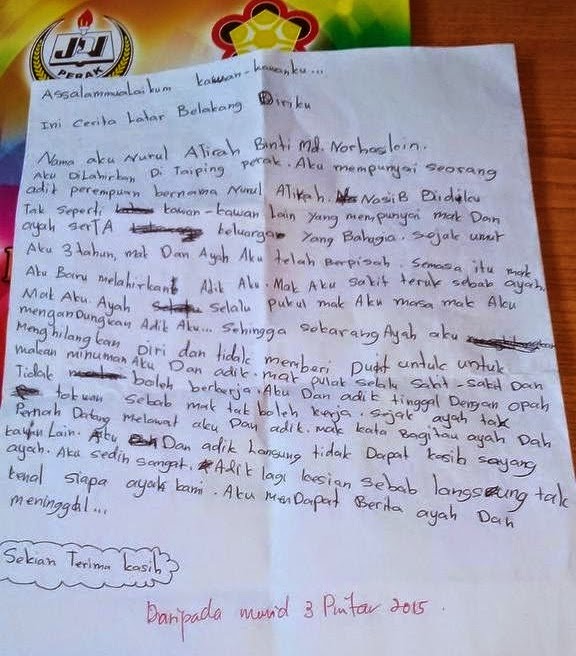 JNJ
PERAK
AssalammuaLaikum kawan-kawanku...
Ini Cerita Latar Belakang Diriku
Nama aku Nurul ATirah Binti Md. Norhaslein.
Aku DiLahirkan Di Taiping perak. Aku mempunyai seorang
adik perempuan bernama Nurul ATikah. NasiB Diriku
Tak seperti kawan-kawan Lain yang mempunyai mak Dan
ayah serTA keluarga Yang Bahagia. Sejak umur
Aku 3 tahun, mak Dan Ayah Aku telah Berpisah. Semasa itu mak
Aku Baru melahirkan Adik Aku. Mak Aku sakit teruk sebab ayah.
Mak Aku. Ayah selalu pukul mak Aku masa mak Aku
mengandungkan Adik Aku... Sehingga sekarang Ayah aku
Menghilangkan Diri dan tidak memberi Duit untuk untuk
makan minuman Aku Dan adik. mak pulak selalu Sakit-sakit Dan
Tidak boleh berkerja. Aku Dan adik tinggal Dengan opah
tokwan sebab mak tak boleh kerja. Sejak ayah tak
Pernah Datang Melawat aku Dan adik. mak kata Bagitau ayah Dah
kawin Lain. Aku Dan adik Lansung tidak Dapat kasih sayang
ayah. Aku sedih sangat. Adik lagi kasian sebab langsung tak
kenal siapa ayah kami. Aku MenDapat Berita ayah Dah
meninggal...
Sekian Terima kasih
Daripada murid 3 Pintar 2015.